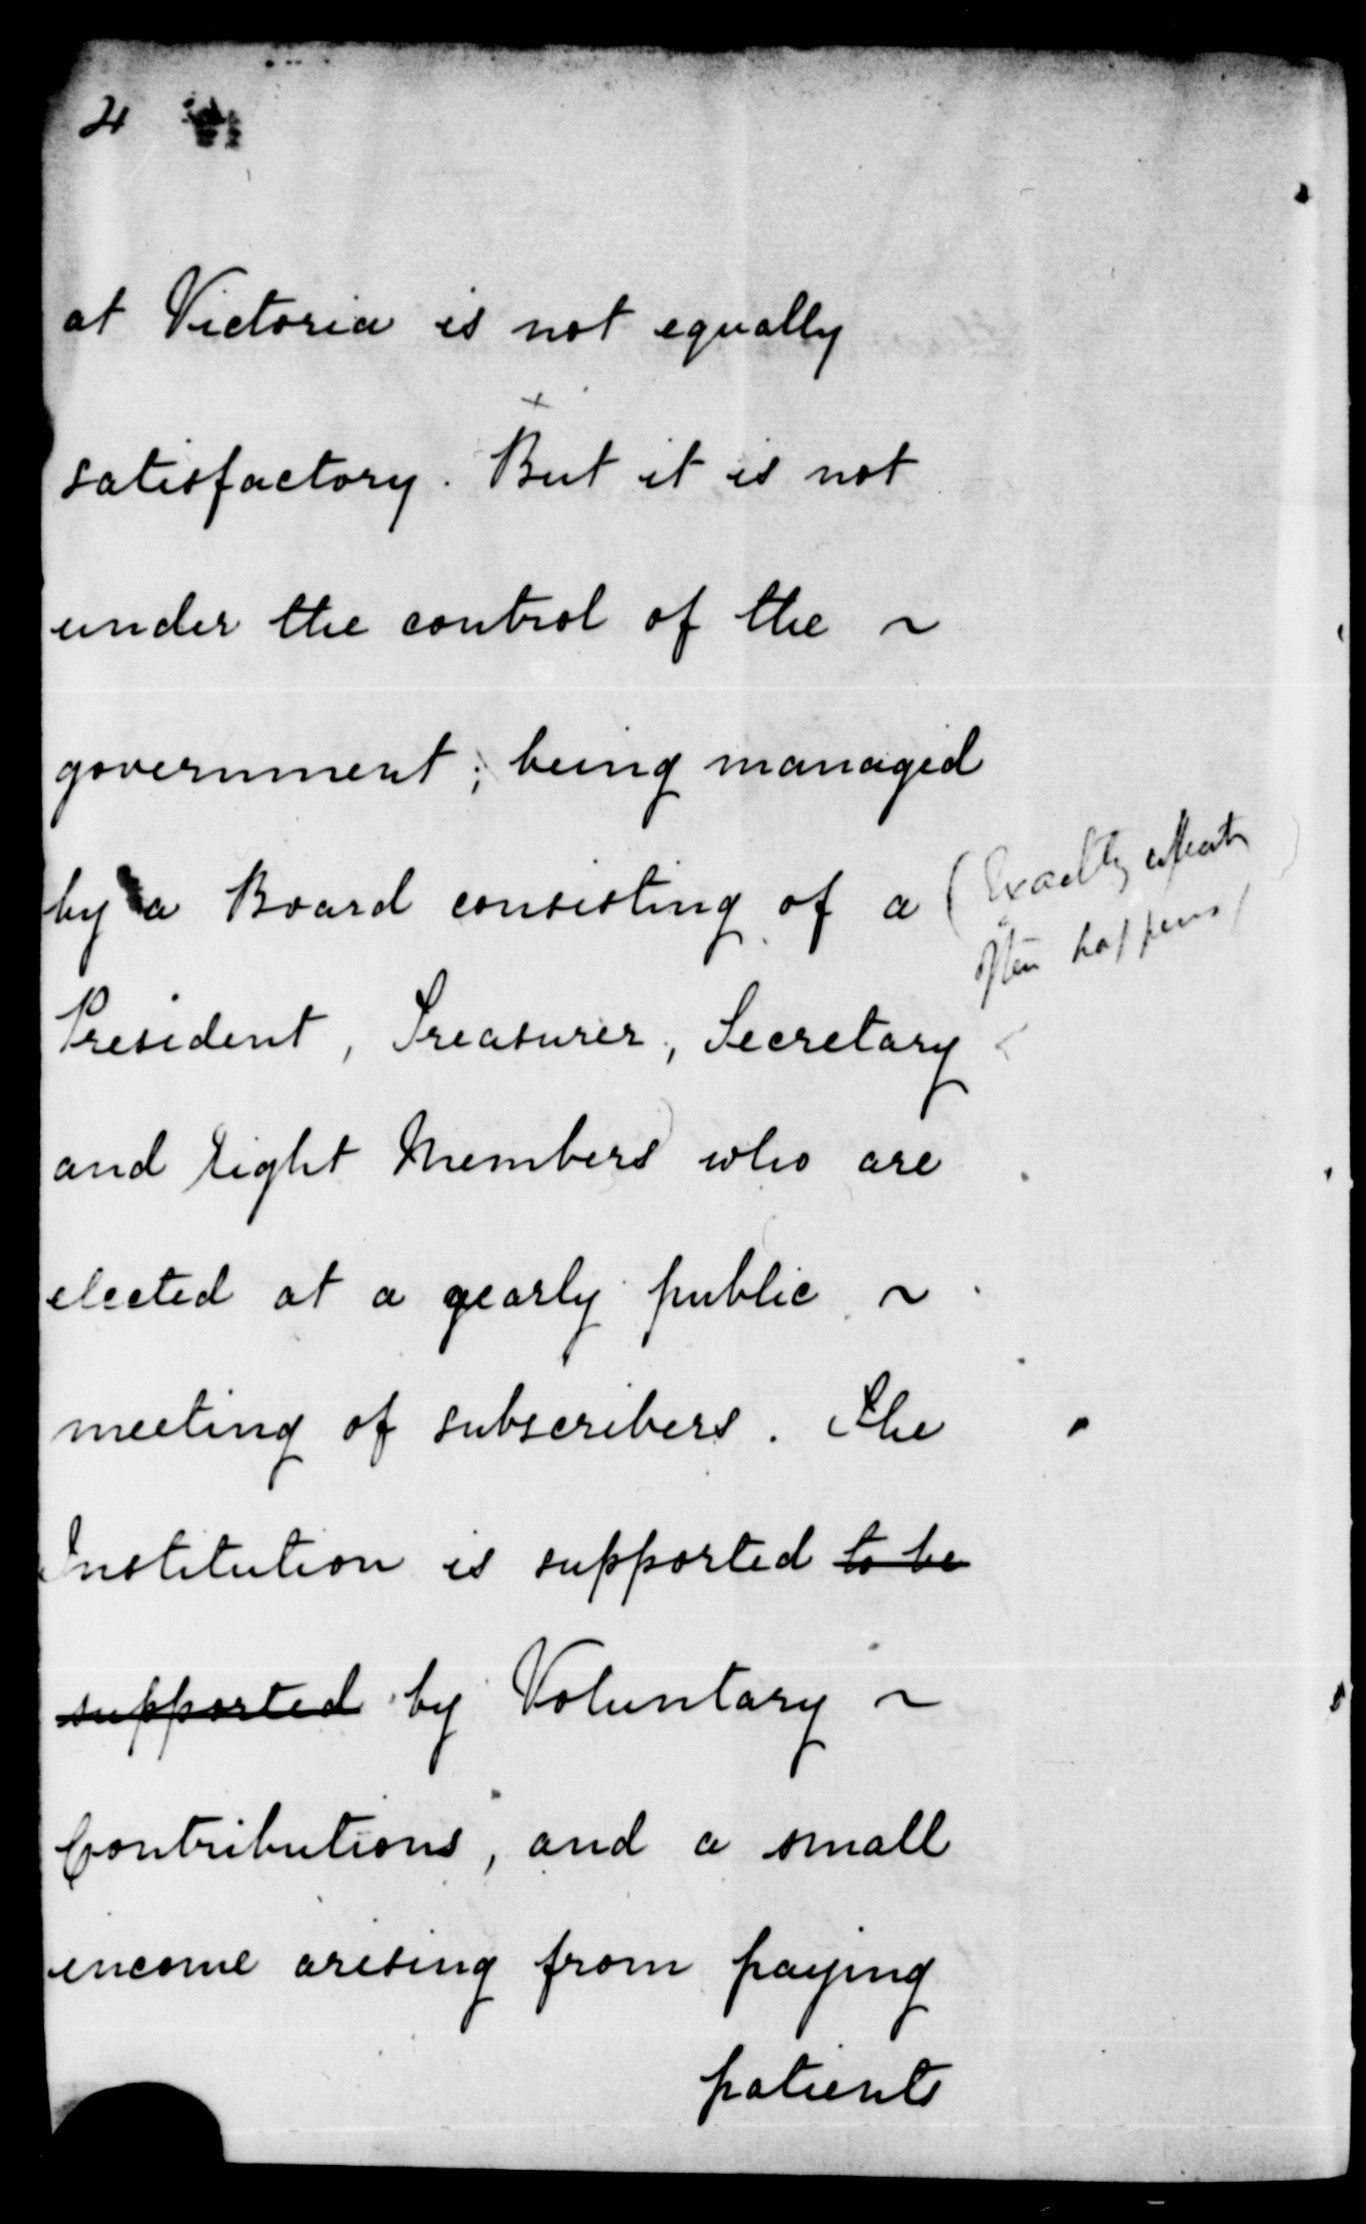 4
at Victoria is not equally
+
satisfactory. But it is not
under the control of the ~
government; being managed
by a Board consisting of a
(Exactly
often happens)
President, Treasurer, Secretary
and Eight Members who are
elected at a yearly public ~
meeting of subscribers. The
Institution is supported to be
supported by Voluntary ~
Contributions, and a small
income arising from paying
patients